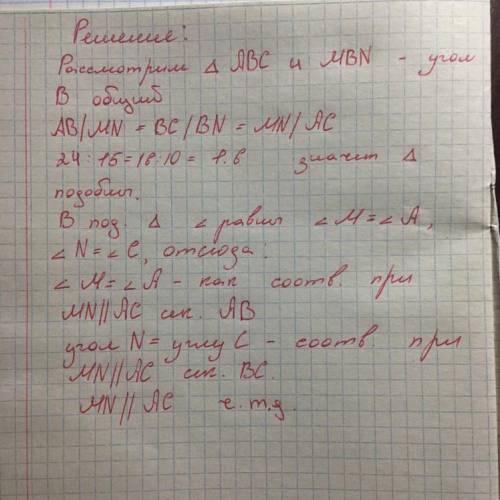 Решение:
Рассмотрим Δ ABC и MBN - угол
В общий
AB/MN = BC/BN = MN/AC
24:15=16:10= 1.6 значит Δ
подобны.
В под. Δ ∠ равны ∠M=∠A,
∠N=∠C, отсюда:
∠M=∠A - как соотв. при
MN||AC сек. AB
угол N = углу C - соотв при
MN||AC сек. BC.
MN || AC ч.т.д.